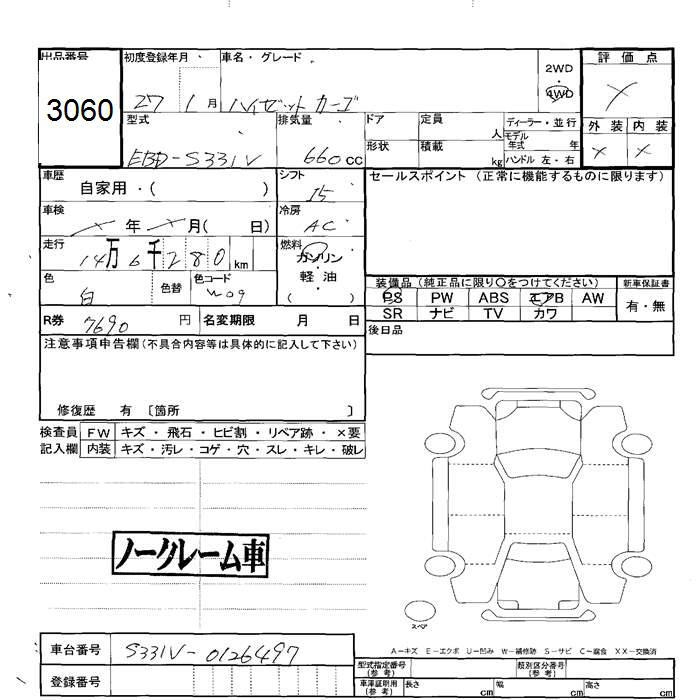 出品番号 初度登録年月 車名・グレード 評価点
2WD
3060 27 1月 ハイゼットカーゴ 4WD ×
型式 排気量 ドア 定員 人 ディーラー・並行 外装 内装
モデル年式 年
EBD-S331V 660cc 形状 積載 kg ハンドル 左・右 × ×
車歴 自家用・( ) シフト I5 セールスポイント (正常に機能するものに限ります)
車検 ×年×月( 日) 冷房 AC
走行 14万6千280km 燃料 ガソリン
・
軽・油
色 白 色替 色コード W09 ( )
装備品(純正品に限り○をつけてください) 新車保証書
PS PW ABS エアB AW 有・無
SR ナビ TV カワ
R券 7690円 名変期限 月 日
後日品
注意事項申告欄(不具合内容等は具体的に記入して下さい)
修復歴 有 〔箇所 〕
検査員 FW キズ・飛石・ヒビ割・リペア跡・×要
記入欄 内装 キズ・汚レ・コゲ・穴・スレ・キレ・破レ
ノークレーム車
スペア
A−キズ E−エクボ U−凹み W−補修跡 S−サビ C−腐食 XX−交換済
車台番号 S331V-0126497
型式指定番号(参考) 類別区分番号(参考)
登録番号 車庫証明用(参考) 長さ cm 幅 cm 高さ cm